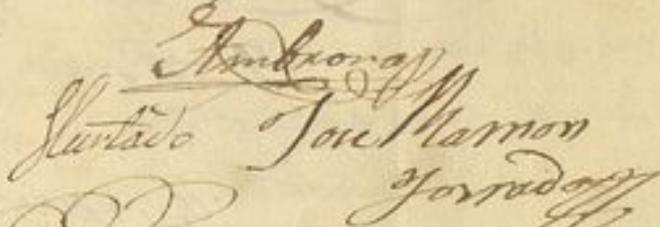 Ambrona
Hurtado Jose Marron
Torrado